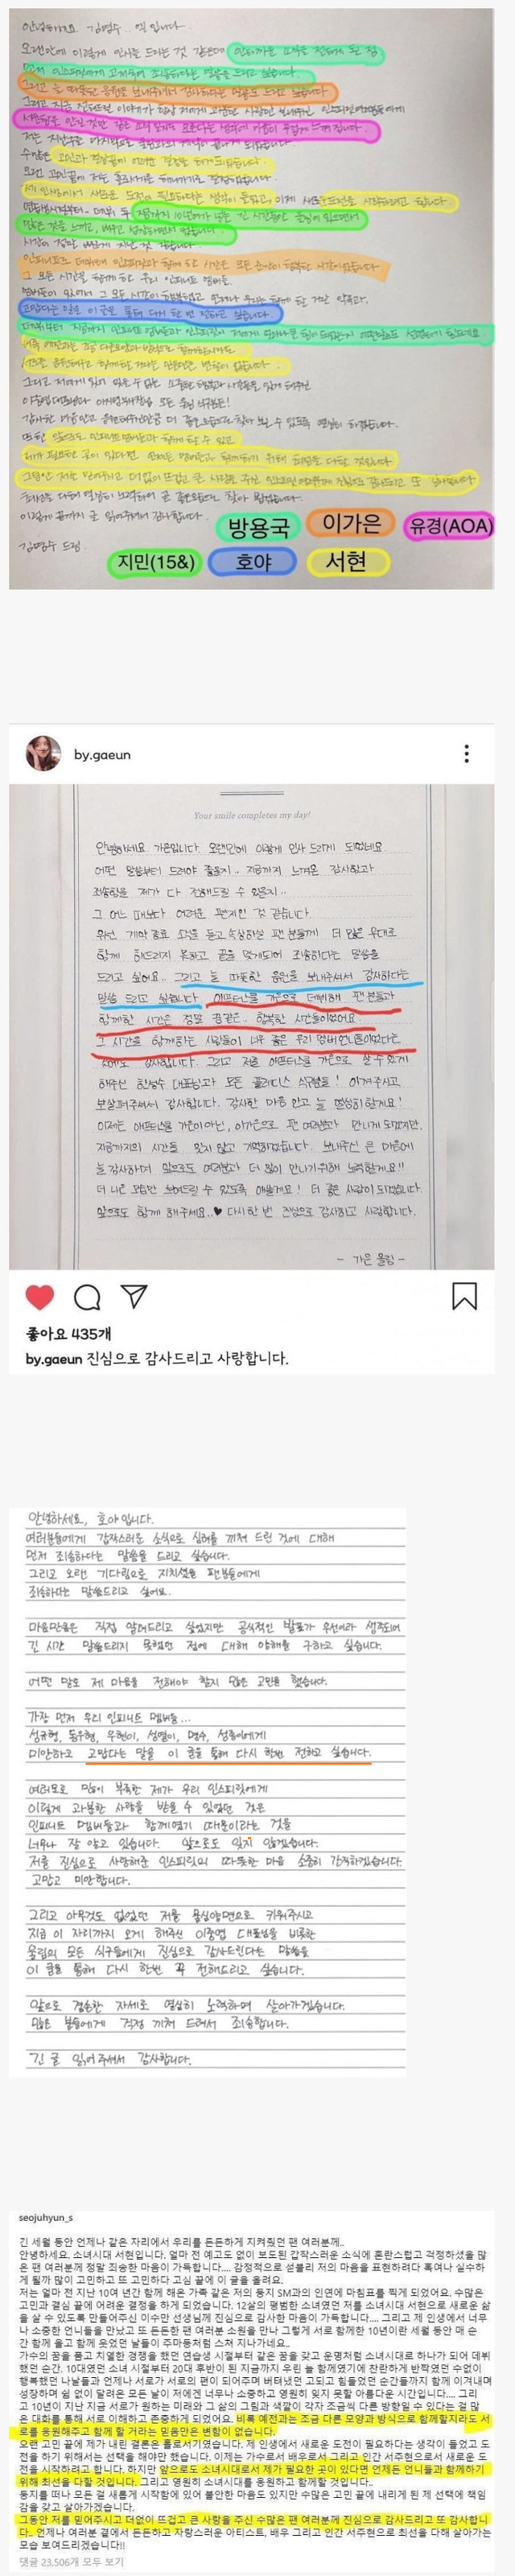 안녕하세요 김명수.. 엘입니다.
오랜만에 이렇게 인사를 드리는 것 같은데 안타까운 소식을 전하게 된 점
먼저 인스피릿에게 고개숙여 죄송하다는 말씀을 드리고 싶습니다.
그리고 늘 따뜻한 응원을 보내주셔서 감사하다는 말씀을 드리고 싶습니다
저는
수많은 고민과 결심 끝에 어려운 결정을 하게 되었습니다.
제 인생에서 새로운 도전이 필요하다는 생각이 들었고, 이제 새로운 도전을 시작하려고 합니다.
많은 것을 느끼고, 배우고 성장하면서
그 모든 시간을 함께 해 준 우리 인피니트 멤버들.
고맙다는 말을 이 글을 통해 다시 한 번 전하고 싶습니다
이렇게 끝까지 글 읽어주셔서 감사합니다.
김명수 드림.
방용국
이가은
유경(AOA)
지민(15&)
호야
서현
by.gaeun
Your smile completes my day!
안녕하세요 가은입니다. 오랜만에 이렇게 인사 드리게 되었네요
어떤 말씀부터 드려야 좋을지.. 지금까지 느껴온 감사함과
죄송함을 제가 다 전해드릴 수 있을지..
그 어느 때보다 어려운 편지인 것 같습니다.
우선 계약 종료 소식을 듣고 속상하실 팬 분들께 더 많은 무대로
함께 해드리지 못하고 끝을 맺게되어 죄송하다는 말씀을
드리고 싶어요.. 그리고 늘 따뜻한 응원을 보내주셔서 감사하다는
말씀 드리고 싶습니다. 애프터스쿨 가은으로 데뷔해 팬 분들과
함께한 시간은 정말 꿈같은.. 행복한 시간들이었어요.
그 시간을 함께하는 사람들이 너무 좋은 우리 멤버언니들이었다는
것에도 감사합니다. 그리고 저를 애프터스쿨 가은으로 살 수 있게
해주신 한성수 대표님과 모든 플레디스 식구분들! 아껴주시고
보살펴주셔서 감사합니다. 감사한 마음 안고 늘 열심히 할게요!
이제는 애프터스쿨 가은이 아닌, 이가은으로 팬 여러분과 만나게 되겠지만,
지금까지의 시간들 잊지 않고 기억하겠습니다. 보내주신 큰 마음에
늘 감사하며 앞으로도 여러분과 더 많이 만나기위해 노력할게요!!
더 나은 모습만 보여드릴 수 있도록 애쓸게요! 더 좋은 사람이 되겠습니다.
앞으로도 함께 해주세요..♥ 다시 한 번 진심으로 감사하고 사랑합니다.
- 가은 올림 -
좋아요 435개
by.gaeun 진심으로 감사드리고 사랑합니다.
안녕하세요, 호야 입니다.
여러분들에게 갑작스러운 소식으로 심려를 끼쳐 드린 것에 대해
먼저 죄송하다는 말씀을 드리고 싶습니다.
그리고 오랜 기다림으로 지치셨을 팬분들에게
죄송하다는 말씀드리고 싶어요.
마음만큼은 직접 알려드리고 싶었지만 공식적인 발표가 우선이라 생각되어
긴 시간 말씀드리지 못했던 점에 대해 양해를 구하고 싶습니다.
어떤 말로 제 마음을 전해야 할지 많은 고민을 했습니다.
가장 먼저 우리 인피니트 멤버들...
성규형, 동우형, 우현이, 성열이, 명수, 성종이에게
미안하고 고맙다는 말을 이 글을 통해 다시 한번 전하고 싶습니다.
여러모로 많이 부족한 제가 우리 인스피릿에게
이렇게 과분한 사랑을 받을 수 있었던 것은
인피니트 멤버들과 함께였기 때문이라는 것을
너무나 잘 알고 있습니다. 앞으로도 잊지 않겠습니다.
저를 진심으로 사랑해준 인스피릿의 따뜻한 마음 소중히 간직하겠습니다.
고맙고 미안합니다.
그리고 아무것도 없었던 저를 물심양면으로 키워주시고
지금 이 자리까지 오게 해주신 이중엽 대표님을 비롯한
울림의 모든 식구들에게 진심으로 감사드린다는 말씀을
이 글을 통해 다시 한번 꼭 전해드리고 싶습니다.
앞으로 겸손한 자세로 열심히 노력하며 살아가겠습니다.
많은 분들에게 걱정 끼쳐 드려서 죄송합니다.
긴 글 읽어주셔서 감사합니다.
seojuhyun_s
긴 세월 동안 언제나 같은 자리에서 우리를 든든하게 지켜줬던 팬 여러분께..
안녕하세요. 소녀시대 서현입니다. 얼마 전 예고도 없이 보도된 갑작스러운 소식에 혼란스럽고 걱정하셨을 많
은 팬 여러분께 정말 죄송한 마음이 가득합니다.... 감정적으로 섣불리 저의 마음을 표현하려다 혹여나 실수하
게 될까 많이 고민하고 또 고민하다 고심 끝에 이 글을 올려요.
저는 얼마 전 지난 10여 년간 함께 해온 가족 같은 저의 둥지 SM과의 인연에 마침표를 찍게 되었어요. 수많은
고민과 결심 끝에 어려운 결정을 하게 되었습니다. 12살의 평범한 소녀였던 저를 소녀시대 서현으로 새로운 삶
을 살 수 있도록 만들어주신 이수만 선생님께 진심으로 감사한 마음이 가득합니다.... 그리고 제 인생에서 너무
나 소중한 언니들을 만났고 또 든든한 팬 여러분 소원을 만나 그렇게 서로 함께한 10년이란 세월 동안 매 순
간 함께 울고 함께 웃었던 날들이 주마등처럼 스쳐 지나가네요..
가수의 꿈을 품고 치열한 경쟁을 했던 연습생 시절부터 같은 꿈을 갖고 운명처럼 소녀시대로 하나가 되어 데뷔
했던 순간. 10대였던 소녀 시절부터 20대 후반이 된 지금까지 우린 늘 함께였기에 찬란하게 반짝였던 수없이
행복했던 나날들과 언제나 서로가 서로의 편이 되어주며 버텨냈던 고되고 힘들었던 순간들까지 함께 이겨내며
성장하며 쉼 없이 달려온 모든 날이 저에겐 너무나 소중하고 영원히 잊지 못할 아름다운 시간입니다.... 그리
고 10년이 지난 지금 서로가 원하는 미래와 그 삶의 그림과 색깔이 각자 조금씩 다른 방향일 수 있다는 걸 많
은 대화를 통해 서로 이해하고 존중하게 되었어요. 비록 예전과는 조금 다른 모양과 방식으로 함께할지라도 서
로를 응원해주고 함께 할 거라는 믿음만은 변함이 없습니다.
오랜 고민 끝에 제가 내린 결론은 홀로서기였습니다. 제 인생에서 새로운 도전이 필요하다는 생각이 들었고 도
전을 하기 위해서는 선택을 해야만 했습니다. 이제는 가수로서 배우로서 그리고 인간 서주현으로서 새로운 도
전을 시작하려고 합니다. 하지만 앞으로도 소녀시대로서 제가 필요한 곳이 있다면 언제든 언니들과 함께하기
위해 최선을 다할 것입니다. 그리고 영원히 소녀시대를 응원하고 함께할 것입니다..
둥지를 떠나 모든 걸 새롭게 시작함에 있어 불안한 마음도 있지만 수많은 고민 끝에 내리게 된 제 선택에 책임
감을 갖고 살아가겠습니다.
그동안 저를 믿어주시고 더없이 뜨겁고 큰 사랑을 주신 수많은 팬 여러분께 진심으로 감사드리고 또 감사합니
다.. 언제나 여러분 곁에서 든든하고 자랑스러운 아티스트, 배우 그리고 인간 서주현으로 최선을 다해 살아가는
모습 보여드리겠습니다!!
댓글 23,506개 모두 보기